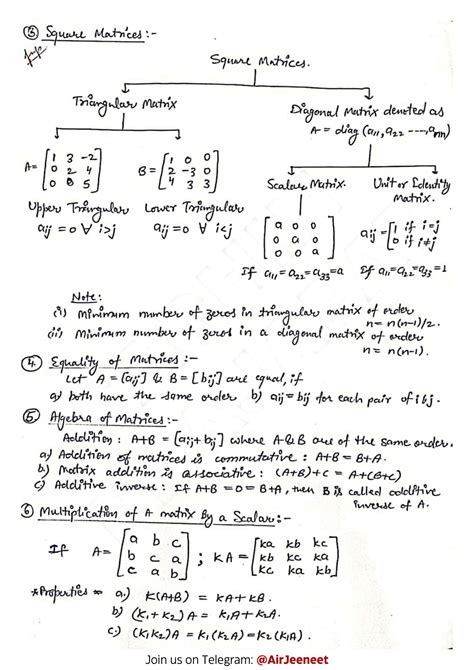 ③ Square Matrices :-
Imp
Square Matrices.
Triangular Matrix
Diagonal Matrix denoted as
A = diag (a11, a22 ----, ann)
A = [1 3 -2
0 2 4
0 0 5]
B = [1 0 0
2 -3 0
4 3 3]
Upper Triangular
aij = 0 ∀ i>j
Lower Triangular
aij = 0 ∀ i<j
Scalar Matrix.
[a 0 0
0 a 0
0 0 a]
If a11 = a22 = a33 = a
Unit or Identity
Matrix.
aij = [1 if i=j
0 if i≠j
If a11 = a22 = a33 = 1
Note:
(i) Minimum number of zeros in triangular matrix of order
n = n(n-1)/2.
(ii) Minimum number of zeros in a diagonal matrix of order
n = n(n-1).
④ Equality of Matrices :-
Let A = [aij] & B = [bij] are equal, if
a) both have the same order b) aij = bij for each pair of i & j.
⑤ Algebra of Matrices :-
Addition : A+B = [aij + bij] where A & B are of the same order.
a) Addition of matrices is commutative : A+B = B+A.
b) Matrix addition is associative : (A+B)+C = A+(B+C)
c) Additive inverse : If A+B = 0 = B+A, then B is called additive
inverse of A.
⑥ Multiplication of A matrix By a Scalar :-
If A = [a b c
b c a
c a b] ; KA = [ka kb kc
kb kc ka
kc ka kb]
*Properties a.) K(A+B) = KA + KB.
b) (K1 + K2)A = K1A + K2A.
c.) (K1K2)A = K1(K2A) = K2(K1A).
Join us on Telegram: @AirJeeneet